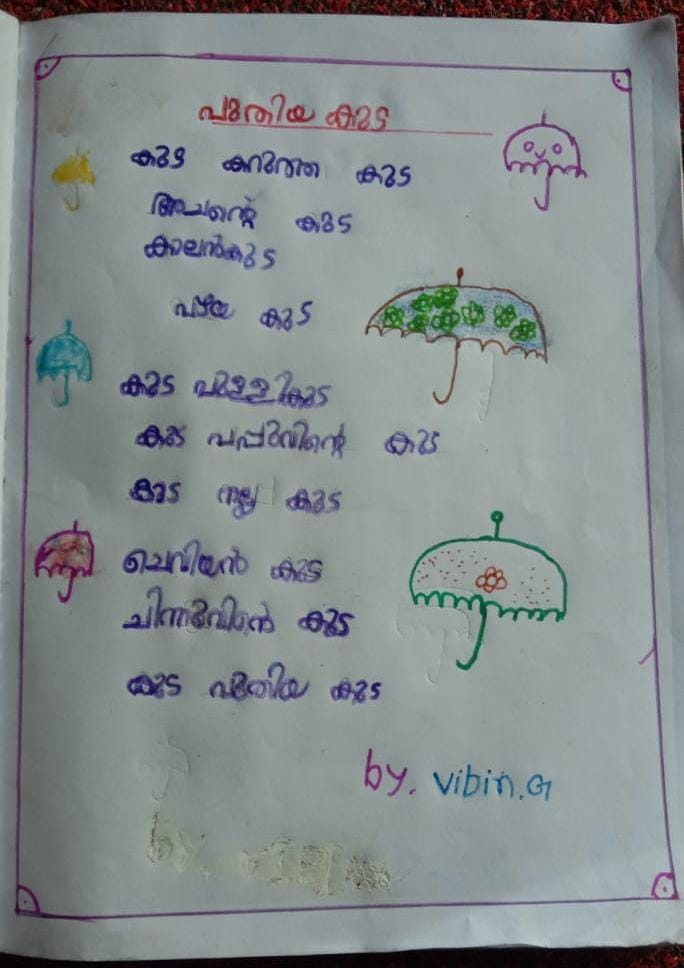 പുതിയ കുട
കുട കറുത്ത കുട
അച്ചന്റെ കുട
കാലൻകുട
പഴയ കുട
കുട പുള്ളികുട
കുട പപ്പുവിന്റെ കുട
കുട നല്ല കുട
ചെവിയൻ കുട
ചിന്നുവിൻെ കുട
കുട പുതിയ കുട
by. vibin.G